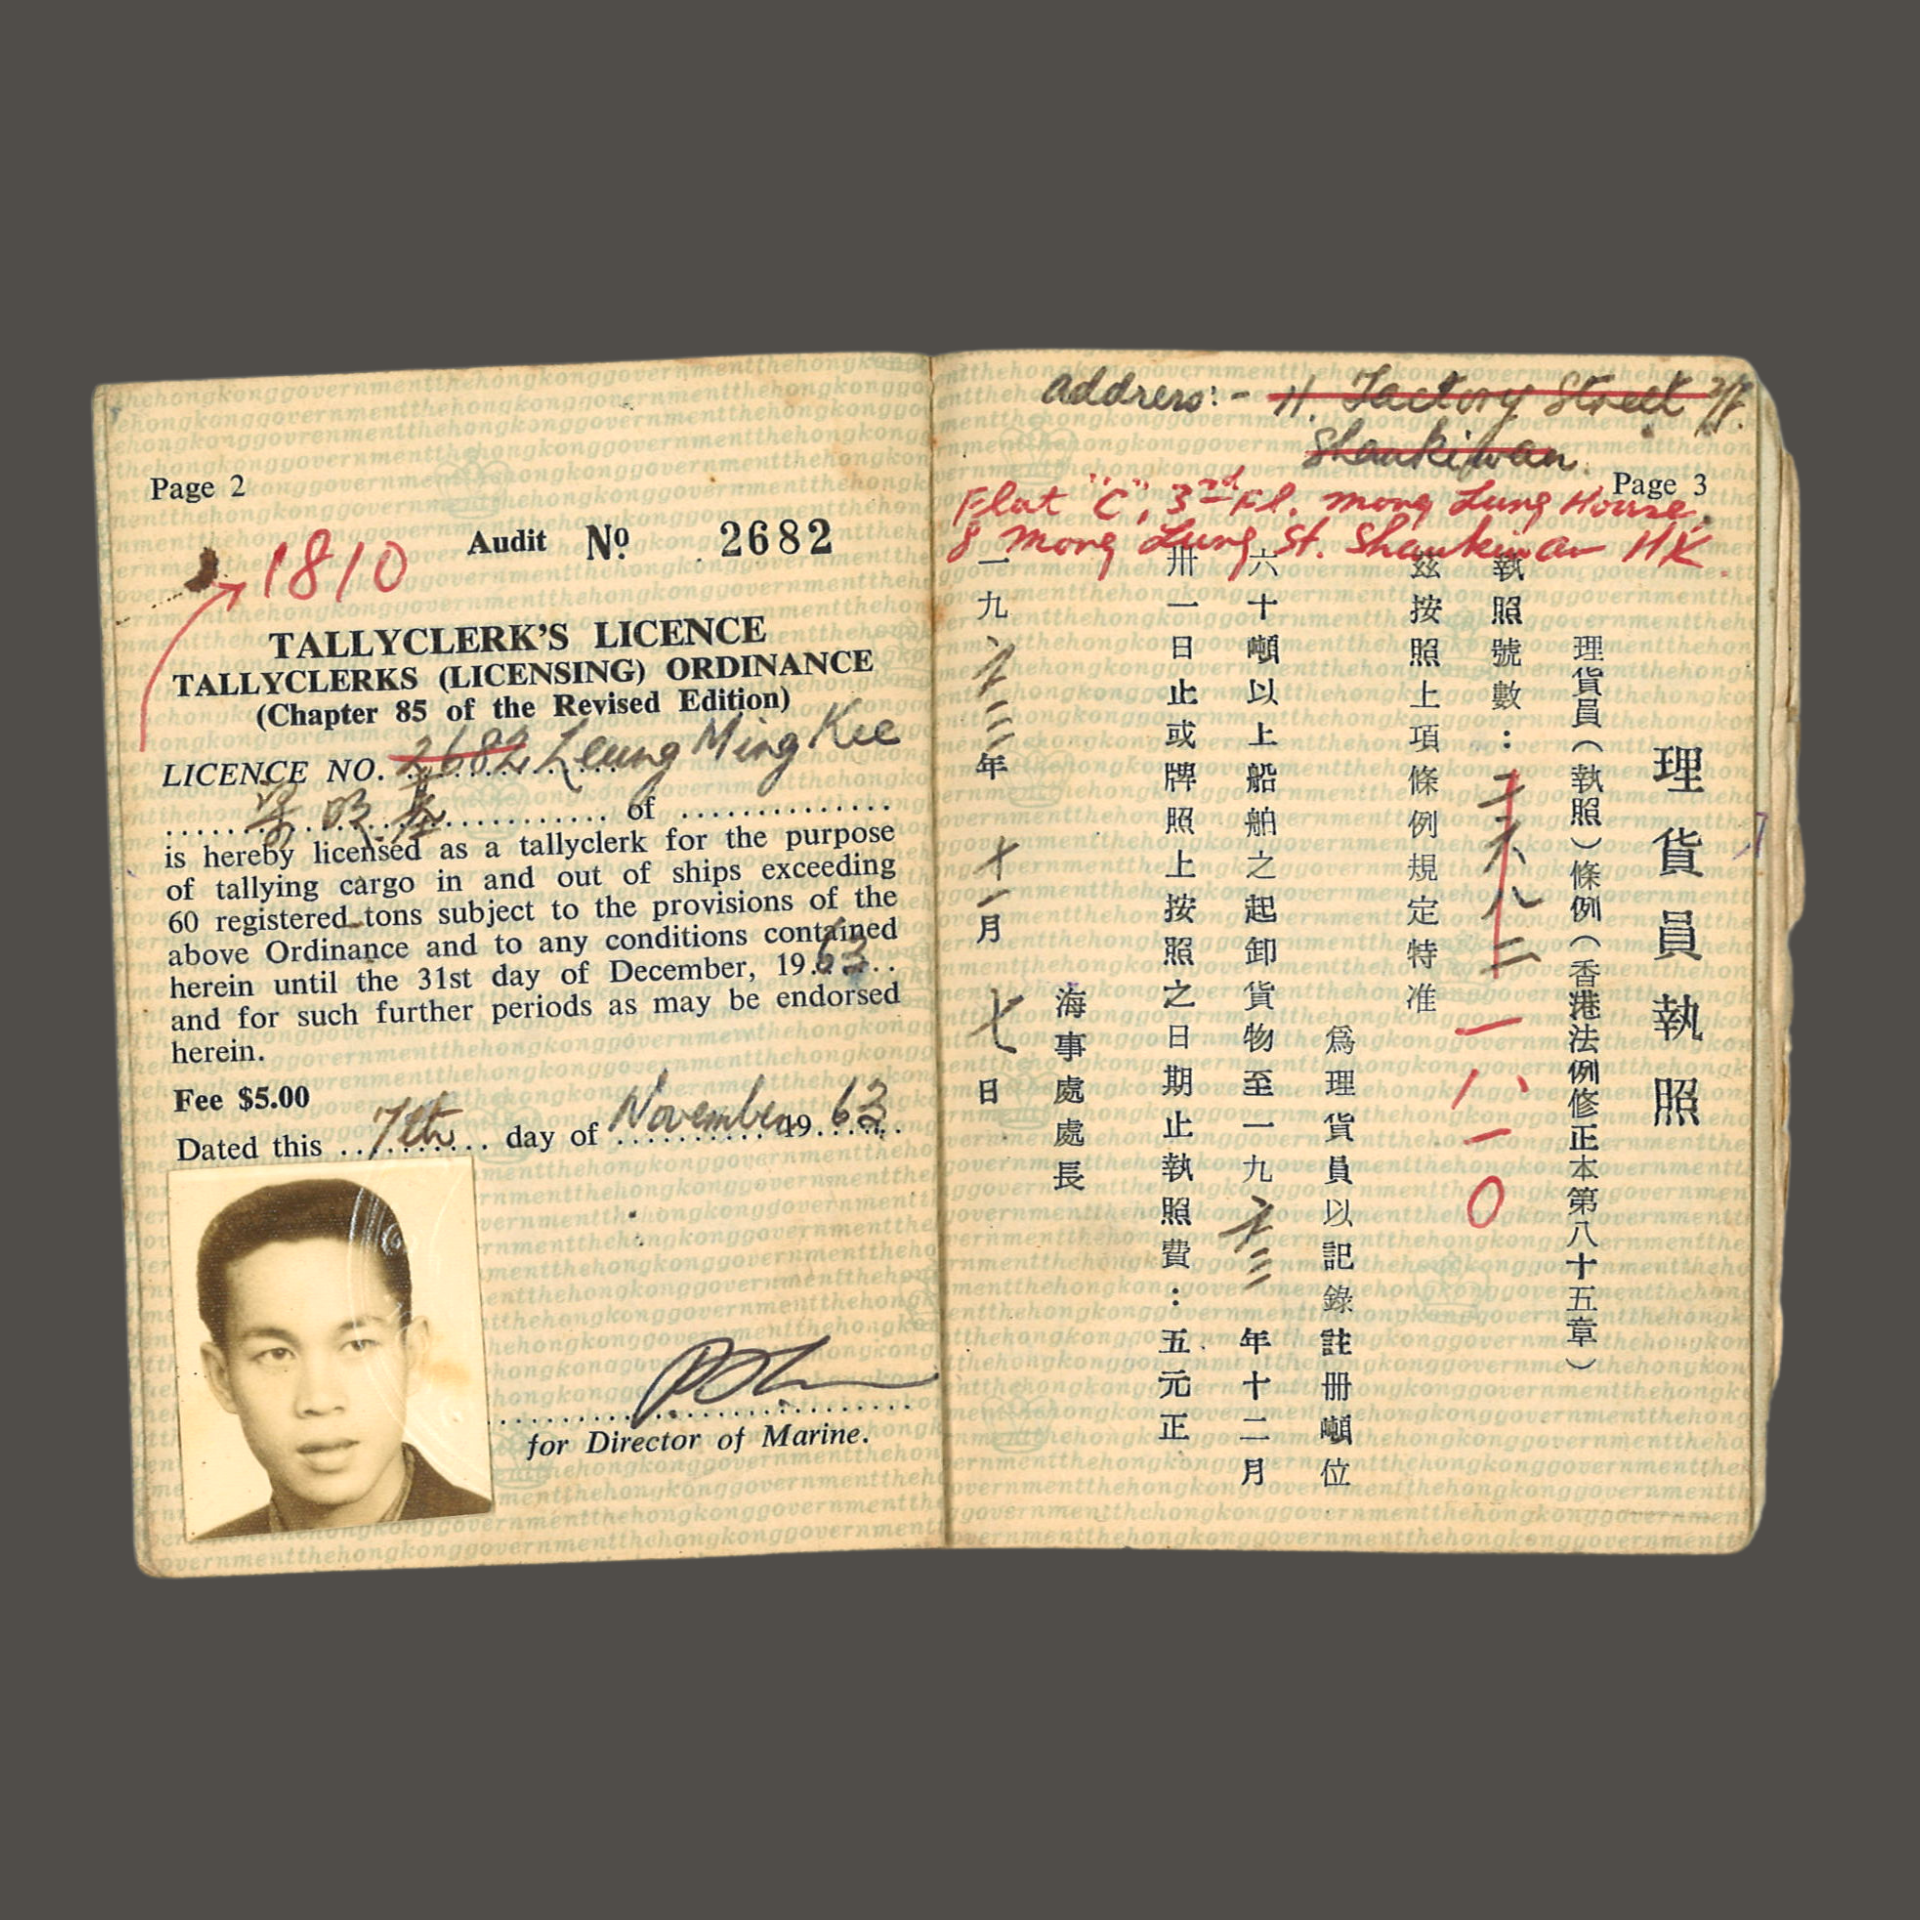 Page 2
1810
Audit Nº 2682
TALLYCLERK'S LICENCE
TALLYCLERKS (LICENSING) ORDINANCE
(Chapter 85 of the Revised Edition)
LICENCE NO. 2682 Leung Ming Kee
梁明基 of
is hereby licensed as a tallyclerk for the purpose
of tallying cargo in and out of ships exceeding
60 registered tons subject to the provisions of the
above Ordinance and to any conditions contained
herein until the 31st day of December, 1963
and for such further periods as may be endorsed
herein.
Fee $5.00
Dated this 7th day of November 1963
for Director of Marine.
address:- H. Factory Street 2/F.
Shaukiwan.
Page 3
Flat "C", 3rd Fl. Mong Lung House.
8 Mong Lung St. Shaukiwan HK.
理貨員執照
理貨員（執照）條例（香港法例修正本第八十五章）
執照號數：二六八二
一八一〇
茲按照上項條例規定特准
爲理貨員以記錄註冊噸位
六十噸以上船舶之起卸貨物至一九六三年十二月
卅一日止或牌照上按照之日期止執照費：五元正
海事處處長
一九六三年十一月七日